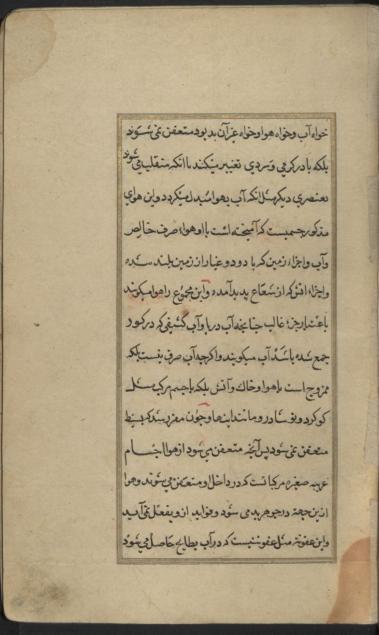 خواه آب و خواه هوا و خواه غیر آن بد بود متعفن نمی شوند
بلکه یا در کرمی و سردی تغییر میکند یا انکه منقلب می شود
بعنصری دیکر مثل انکه آب بهوا مبدل میکردد و این هوای
مذکور جسمیست که آمیخته است با او هواء صرف خالص
و آب و اجزاء زمین که با دود و غبار از زمین بلند شده
و اجزاء آتش که از شعاع پدید آمده و این مجموع را هوا میکویند
باعتبار جزء غالب چنانچه آب دریا و آب کثیفی که در کور
جمع شده باشد آب میکویند و اکرچه آب صرف نیست بلکه
ممزوج است با هوا و خاک و آتش بلکه با جسم مرکب مثل
کوکرد و نوشادر و مانند اینها و چون مقرر شد که بسیط
متعفن نمی شود پس آنچه متعفن می شود از هوا اجسام
غریبه صغیره مرکبا تست که در داخل او متعفن می شوند و هوا
ازین جهته در جوهر بد می شود و فواید از و بفعل نمی آید
و این عفونة مثل عفونتیست که در آب بطایح حاصل می شود